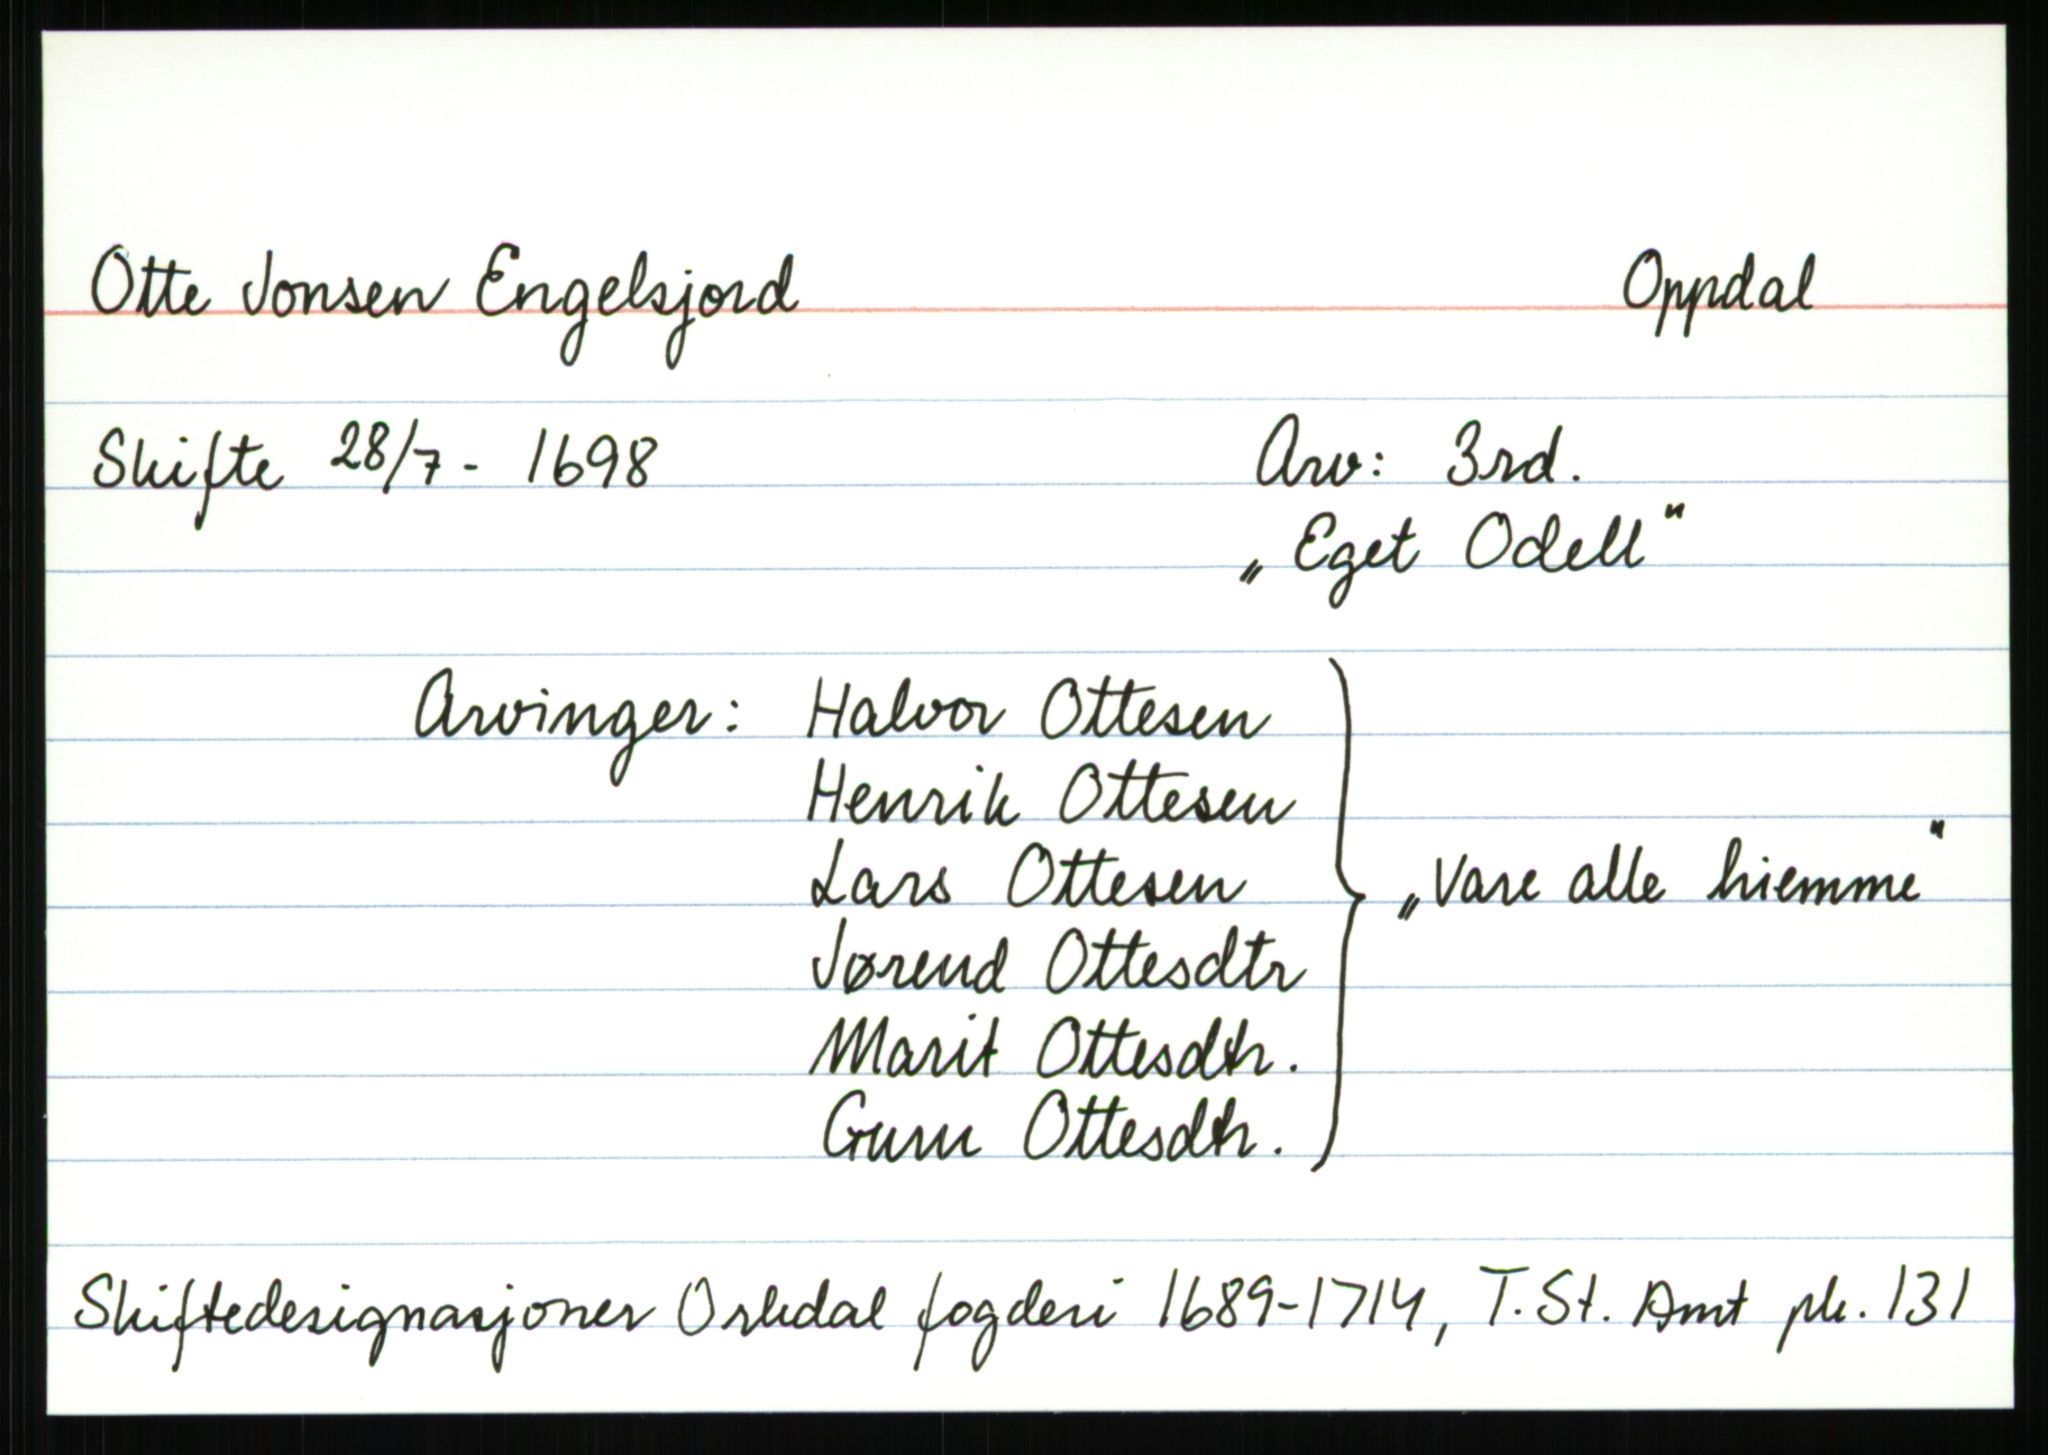 Otte Jonsen Engelsjord Oppdal
Skifte 28/7 - 1698 Arv: 3rd.
„Eget Odell"
Arvinger: Halvor Ottesen
Henrik Ottesen
Lars Ottesen „Vare alle hiemme"
Jørend Ottesdtr
Marit Ottesdtr.
Guru Ottesdtr.
Skiftedesignasjoner Orkdal fogderi 1689-1714, T. St. Amt pk. 131